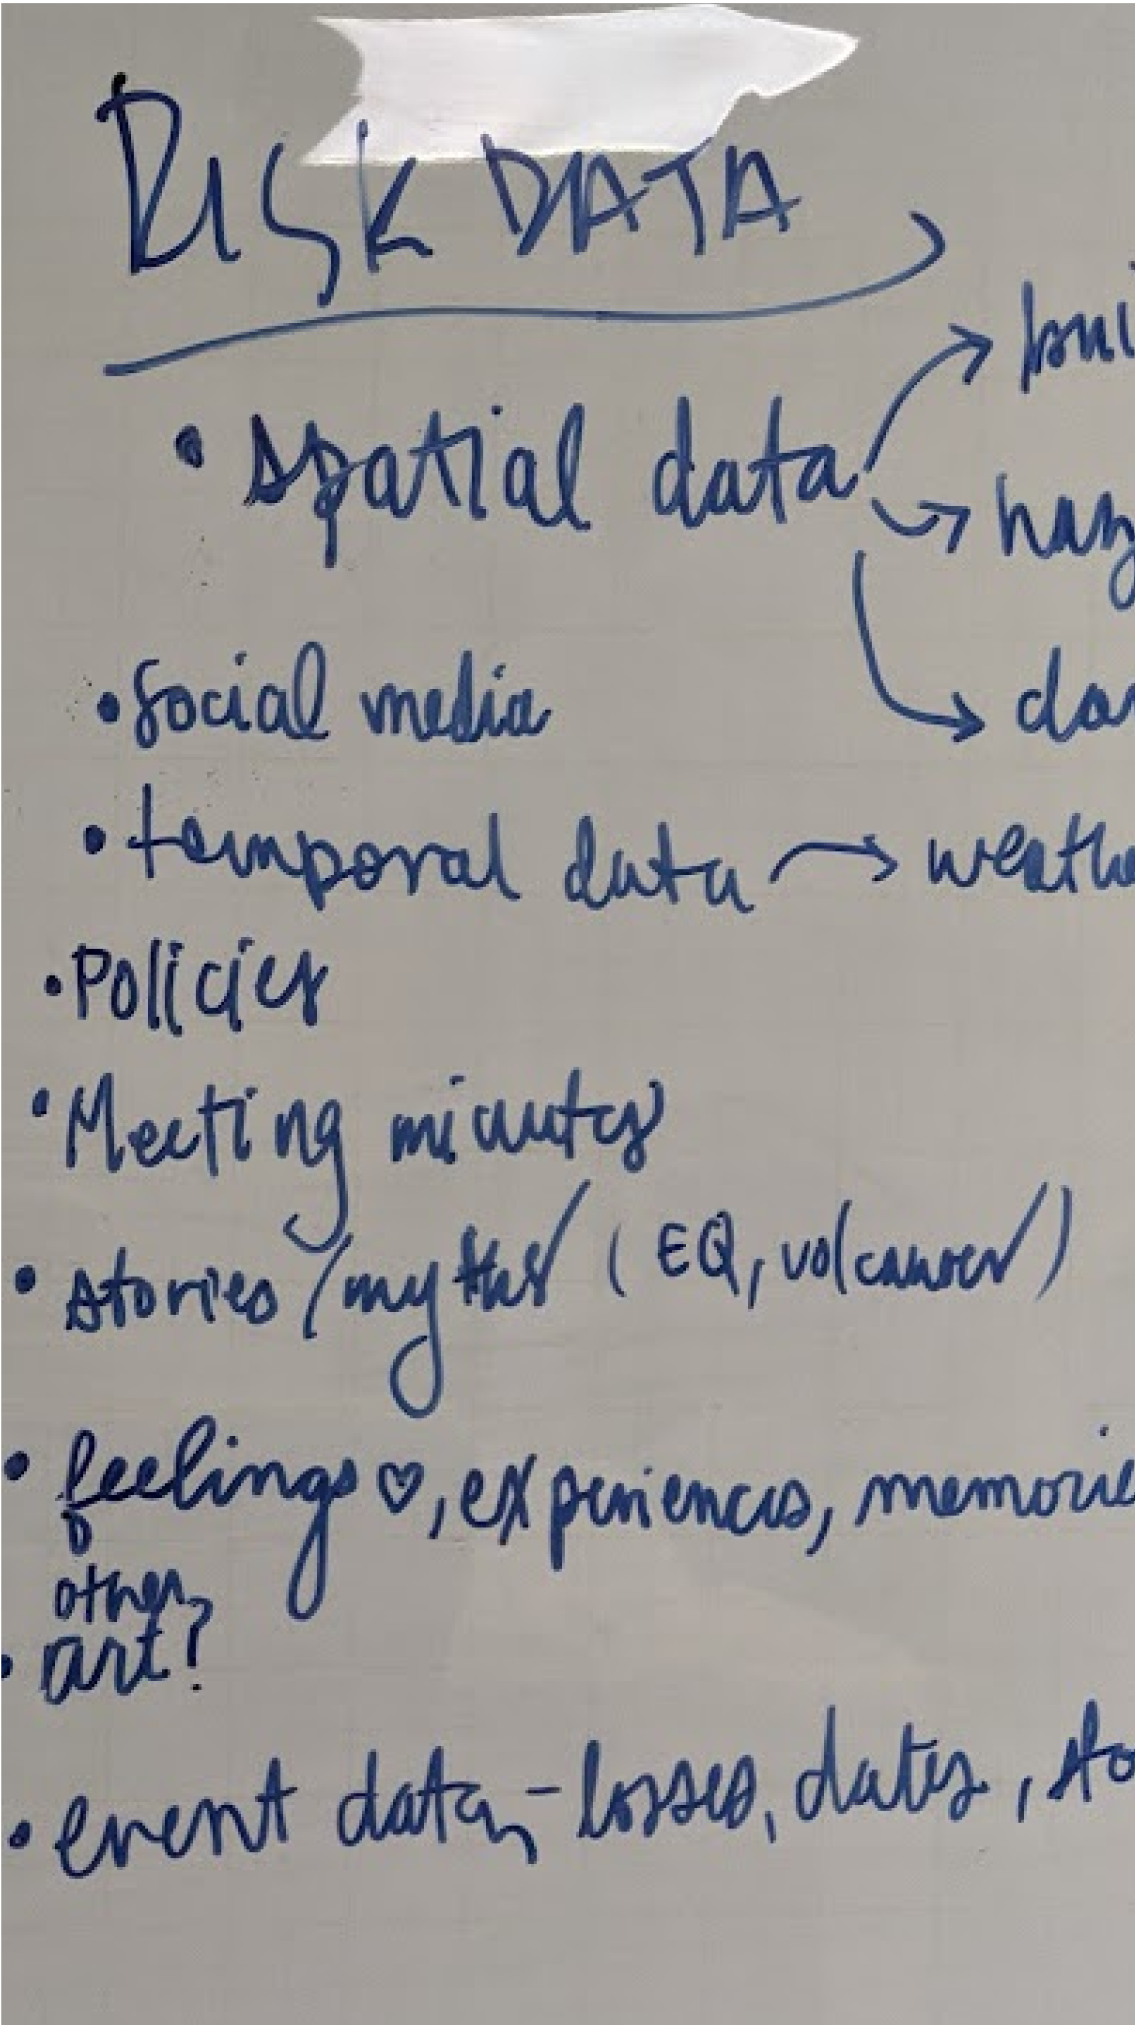 RISK DATA
• spatial data → bui
→ haz
→ da
• Social media
• temporal data → weathe
• Policies
• Meeting minutes
• stories/myths (EQ, volcanoes)
• feelings ♡, experiences, memorie
other
• art?
• event data - losses, dates, sto